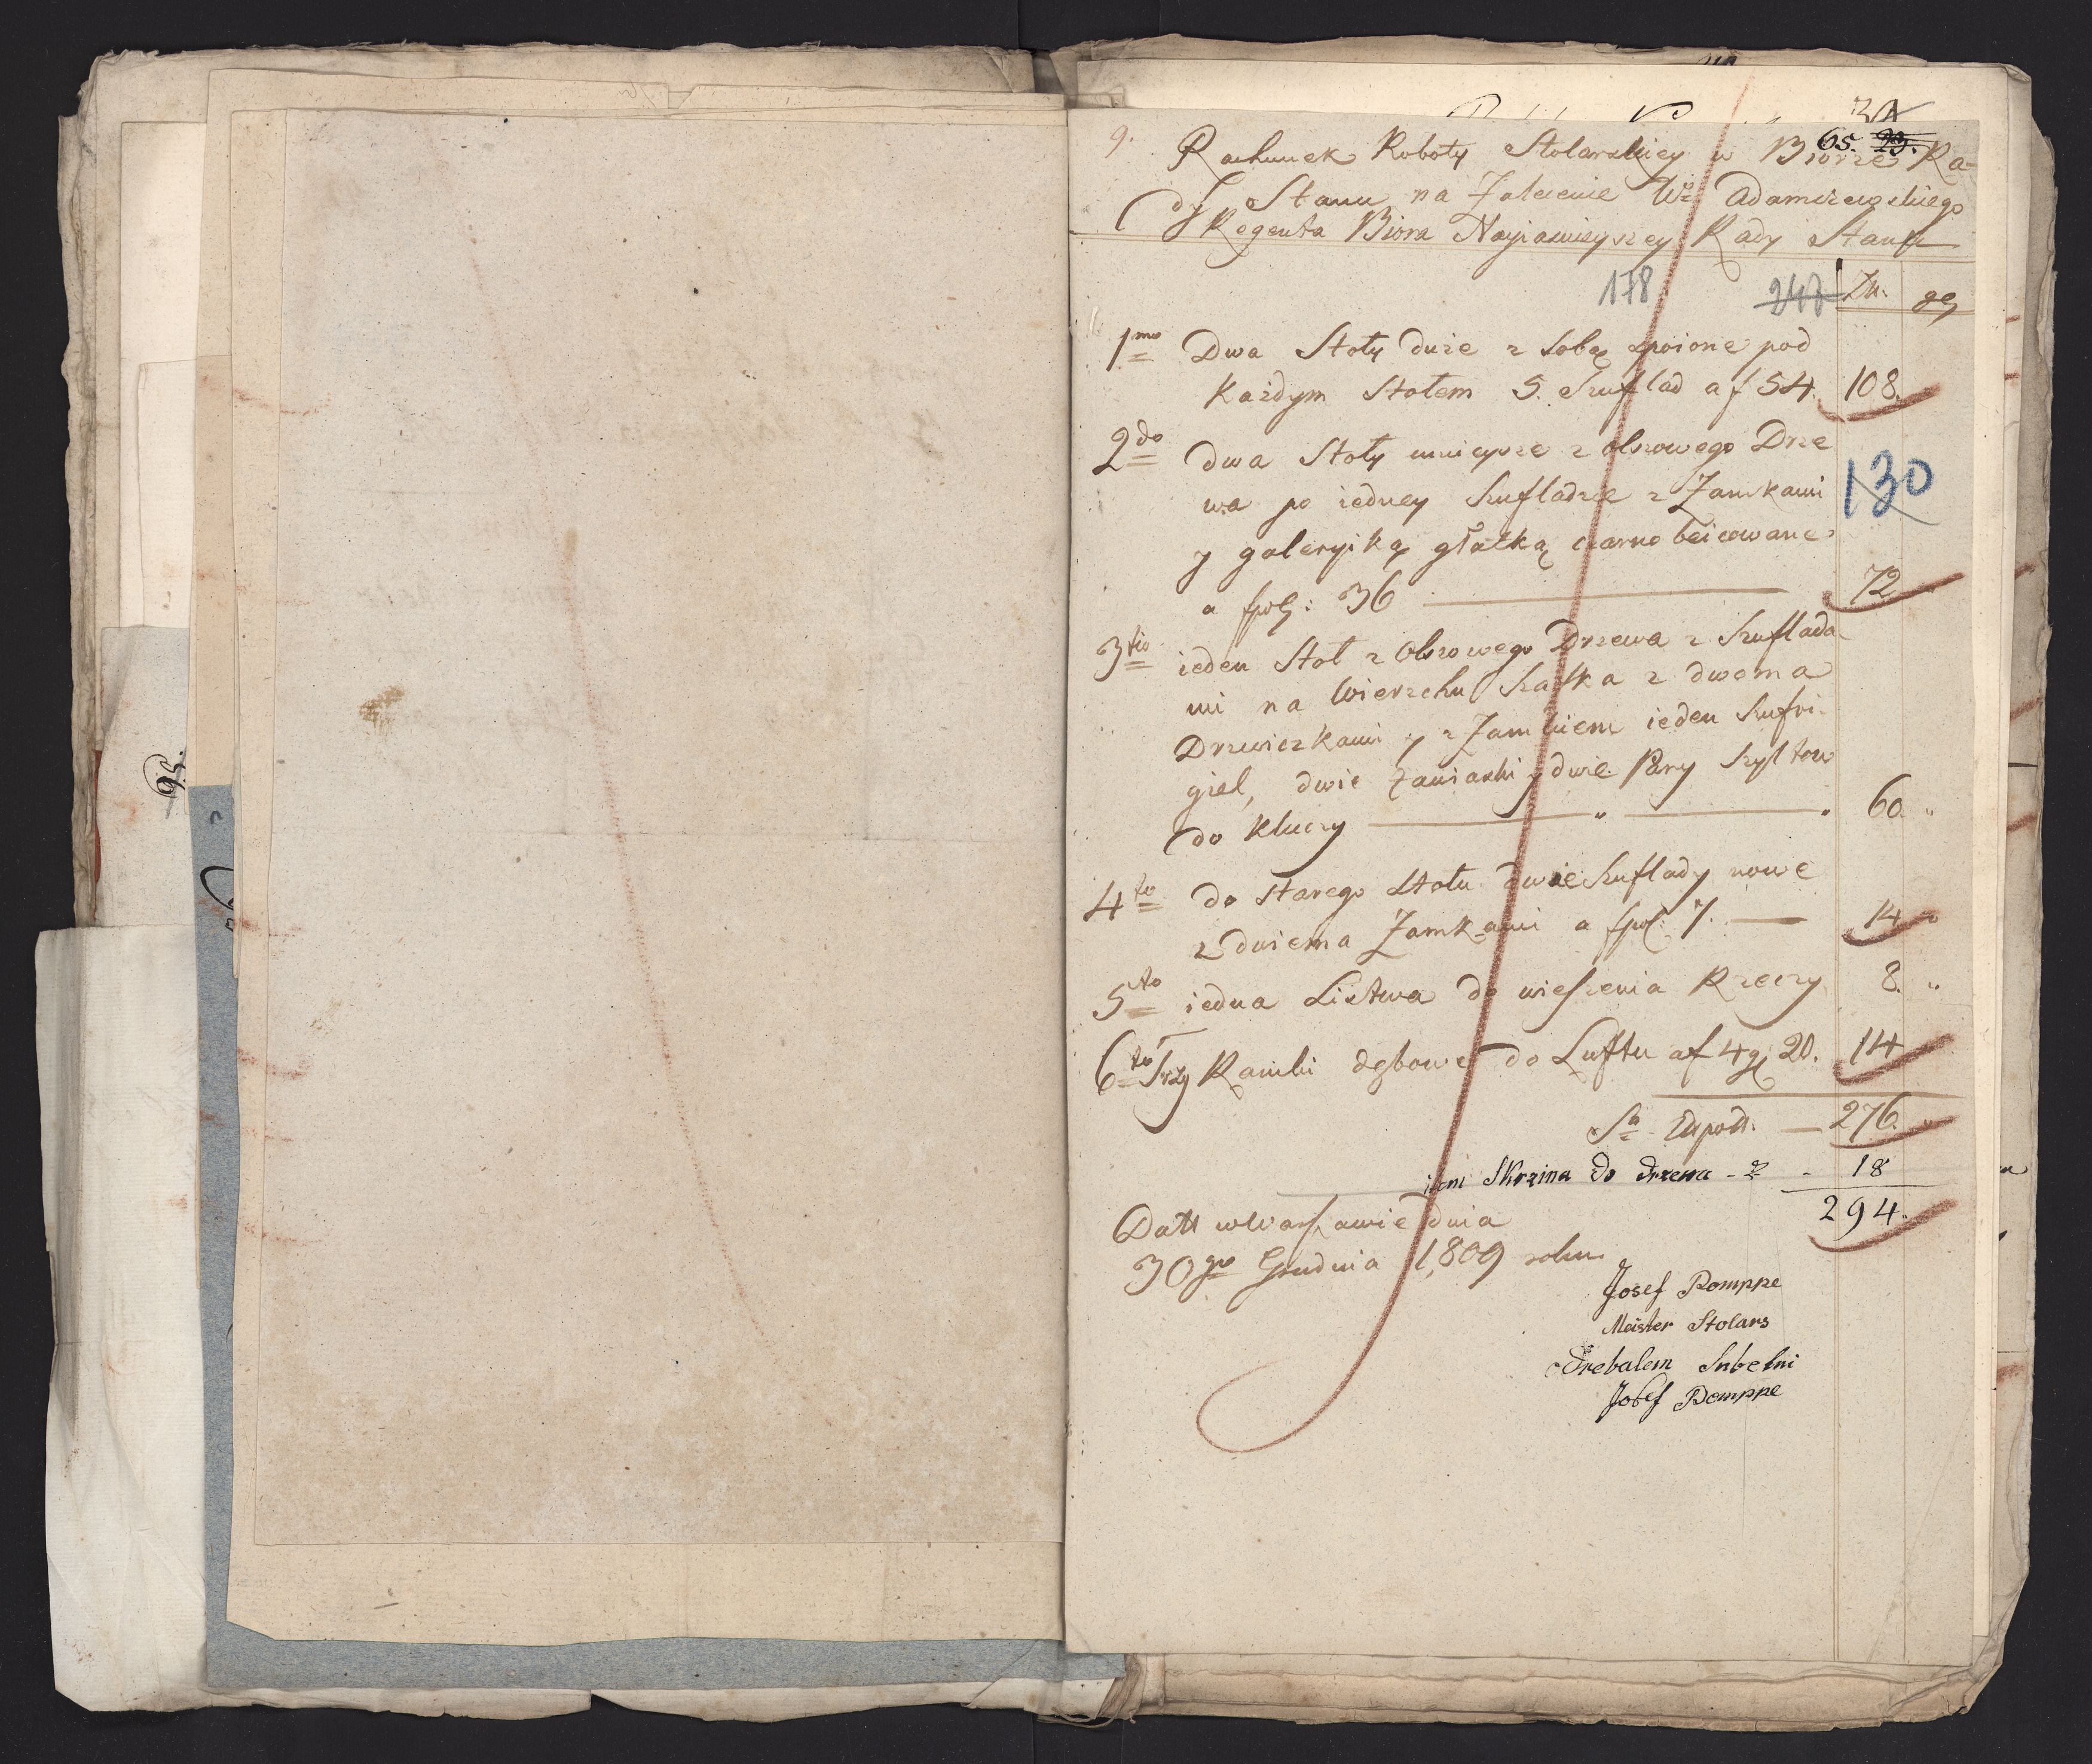 95.
9.
65. 29.
Rachunek Roboty Stolarskiey w Biorze Ra-
dy Stanu na Zalecenie Wo Adamczewskiego
Regenta Biora Nayiasnieyszey Rady Stanu
178 247 Zł. gr
1mo Dwa Stoły duże z sobą spoione pod
Każdym Stołem 5. Szuflad a f 54. 108.
2do dwa Stoły mnieysze z olszowego Drze
wa po iedney Szufladzie z Zamkami 130
y galeryiką gładką czarno beicowane
a fpol: 36 72
3tio ieden Stoł z Olszowego Drzewa z Szuflada
mi na Wierzchu Szafka z dwoma
Drzwiczkami y z Zamkiem ieden Szufri-
giel, dwie Zawiaski y dwie Pary Szyltow
do Kluczy " " 60. "
4to do starego Stołu dwie Szuflady nowe
z dwiema Zamkami a fpol: 7. 14 "
5to iedna Listwa do wieszenia Rzeczy 8. "
6to Trzy Ramki dębowe do Luftu a f 4 gr 20. 14
Sa Złpol. 276. "
item Skrzina do drzewa - 18
294.
Datt w Warszawie dnia
30go Grudnia 1,809 roku
Josef Romppe
Meister Stolars
Josef Romppe